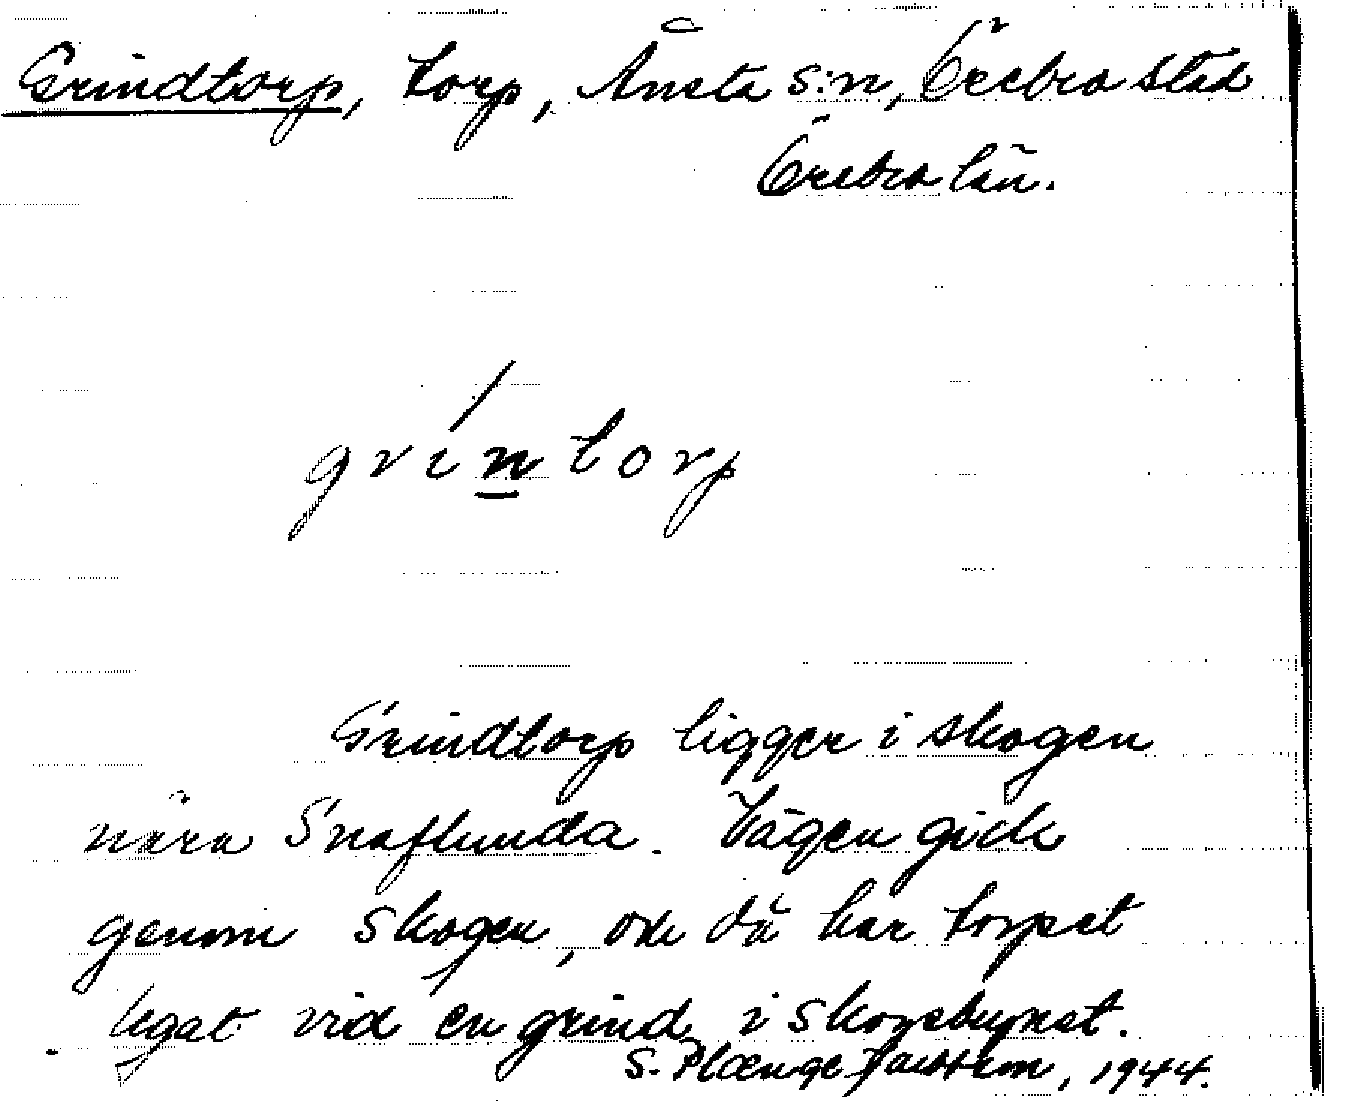 Grindtorp, torp, Ånsta s:n, Örebro stad
Örebro län.
grintorp
Grindtorp ligger i skogen
nära Snaflunda. Vägen gick
genom skogen, och då har torpet
legat vid en grind i skogsbrynet.
S. Plænge Jacobson, 1944.